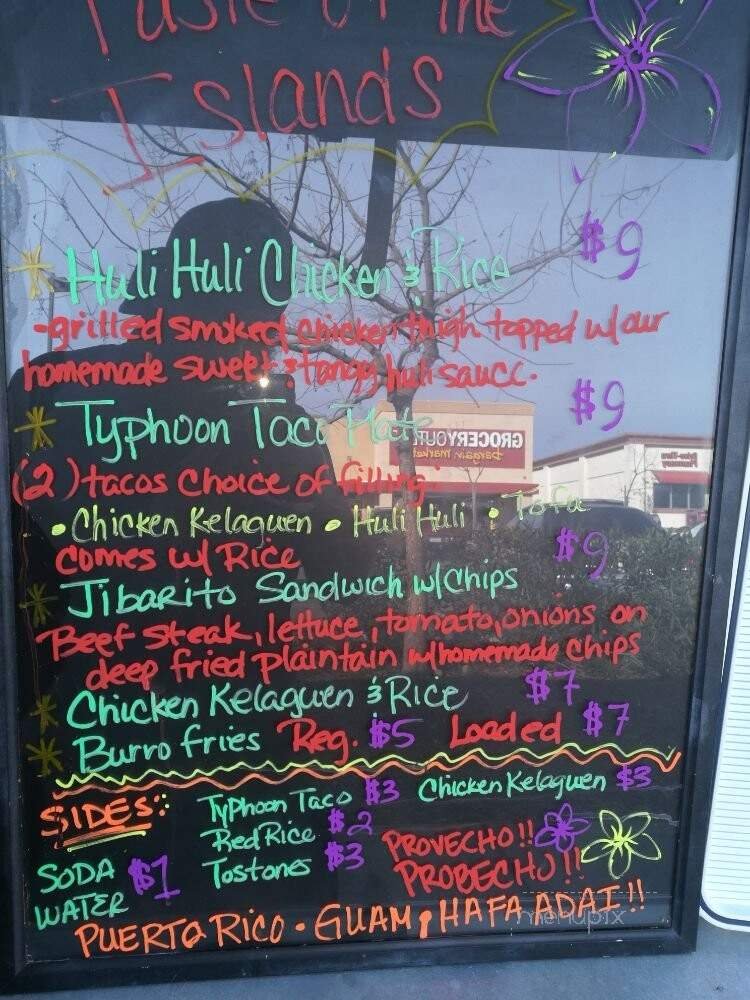 Taste of the
Islands
* Huli Huli Chicken & Rice $9
-grilled smoked chicken thigh topped w/ our
homemade sweet & tangy huli sauce.
* Typhoon Taco Plate $9
(2) tacos Choice of filling:
• Chicken Kelaguen • Huli Huli • Tofu
comes w/ Rice
* Jibarito Sandwich w/Chips $9
Beef steak, lettuce, tomato, onions on
deep fried plaintain w/homemade chips
* Chicken Kelaguen & Rice $7
* Burro fries Reg. $5 Loaded $7
SIDES: Typhoon Taco $3 Chicken Kelaguen $3
Red Rice $2
Tostones $3
SODA
WATER $1
PROVECHO!!
PROBECHO!!
PUERTO RICO • GUAM • HAFA ADAI!!
GROCERY OUTLET
Bargain Market
menupix